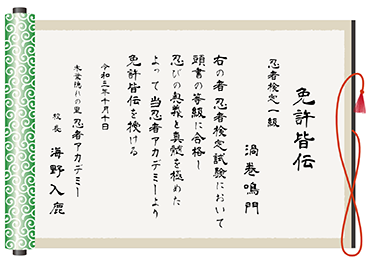 免許皆伝
忍者検定一級
渦巻鳴門
右の者 忍者検定試験において
頭書の等級に合格し
忍びの奥義と真髄を極めた
よって 当忍者アカデミーより
免許皆伝を授ける
令和三年十月十日
木葉隠れの里 忍者アカデミー
校長 海野入鹿